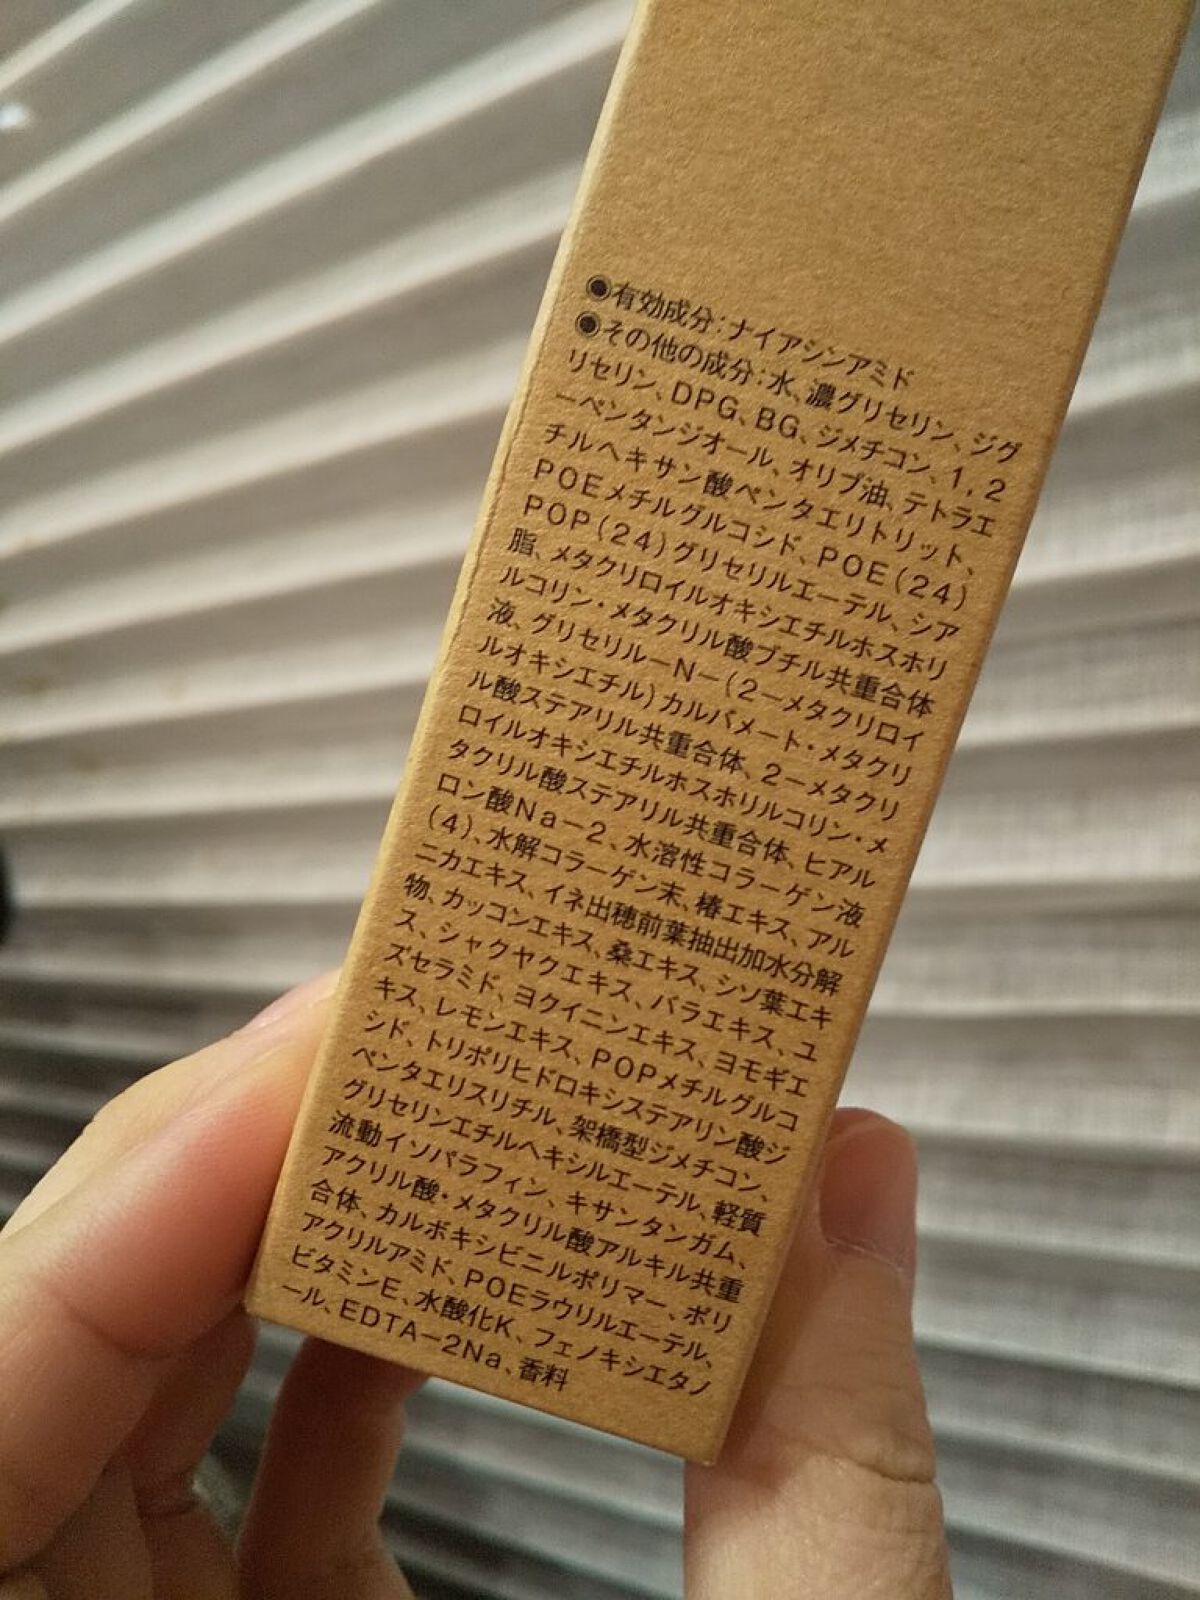 ◉有効成分：ナイアシンアミド
◉その他の成分：水、濃グリセリン、ジグ
リセリン、DPG、BG、ジメチコン、1，2
ーペンタンジオール、オリブ油、テトラエ
チルヘキサン酸ペンタエリトリット、
POEメチルグルコシド、POE（24）
POP（24）グリセリルエーテル、シア
脂、メタクリロイルオキシエチルホスホリ
ルコリン・メタクリル酸ブチル共重合体
液、グリセリルーN－（2－メタクリロイ
ルオキシエチル）カルバメート・メタクリ
ル酸ステアリル共重合体、2－メタクリ
ロイルオキシエチルホスホリルコリン・メ
タクリル酸ステアリル共重合体、ヒアル
ロン酸Na－2、水溶性コラーゲン液
（4）、水解コラーゲン末、椿エキス、アル
ニカエキス、イネ出穂前葉抽出加水分解
物、カッコンエキス、桑エキス、シソ葉エキ
ス、シャクヤクエキス、バラエキス、ユ
ズセラミド、ヨクイニンエキス、ヨモギエ
キス、レモンエキス、POPメチルグルコ
シド、トリポリヒドロキシステアリン酸ジ
ペンタエリスリチル、架橋型ジメチコン、
グリセリンエチルヘキシルエーテル、軽質
流動イソパラフィン、キサンタンガム、
アクリル酸・メタクリル酸アルキル共重
合体、カルボキシビニルポリマー、ポリ
アクリルアミド、POEラウリルエーテル、
ビタミンE、水酸化K、フェノキシエタノ
ール、EDTA－2Na、香料